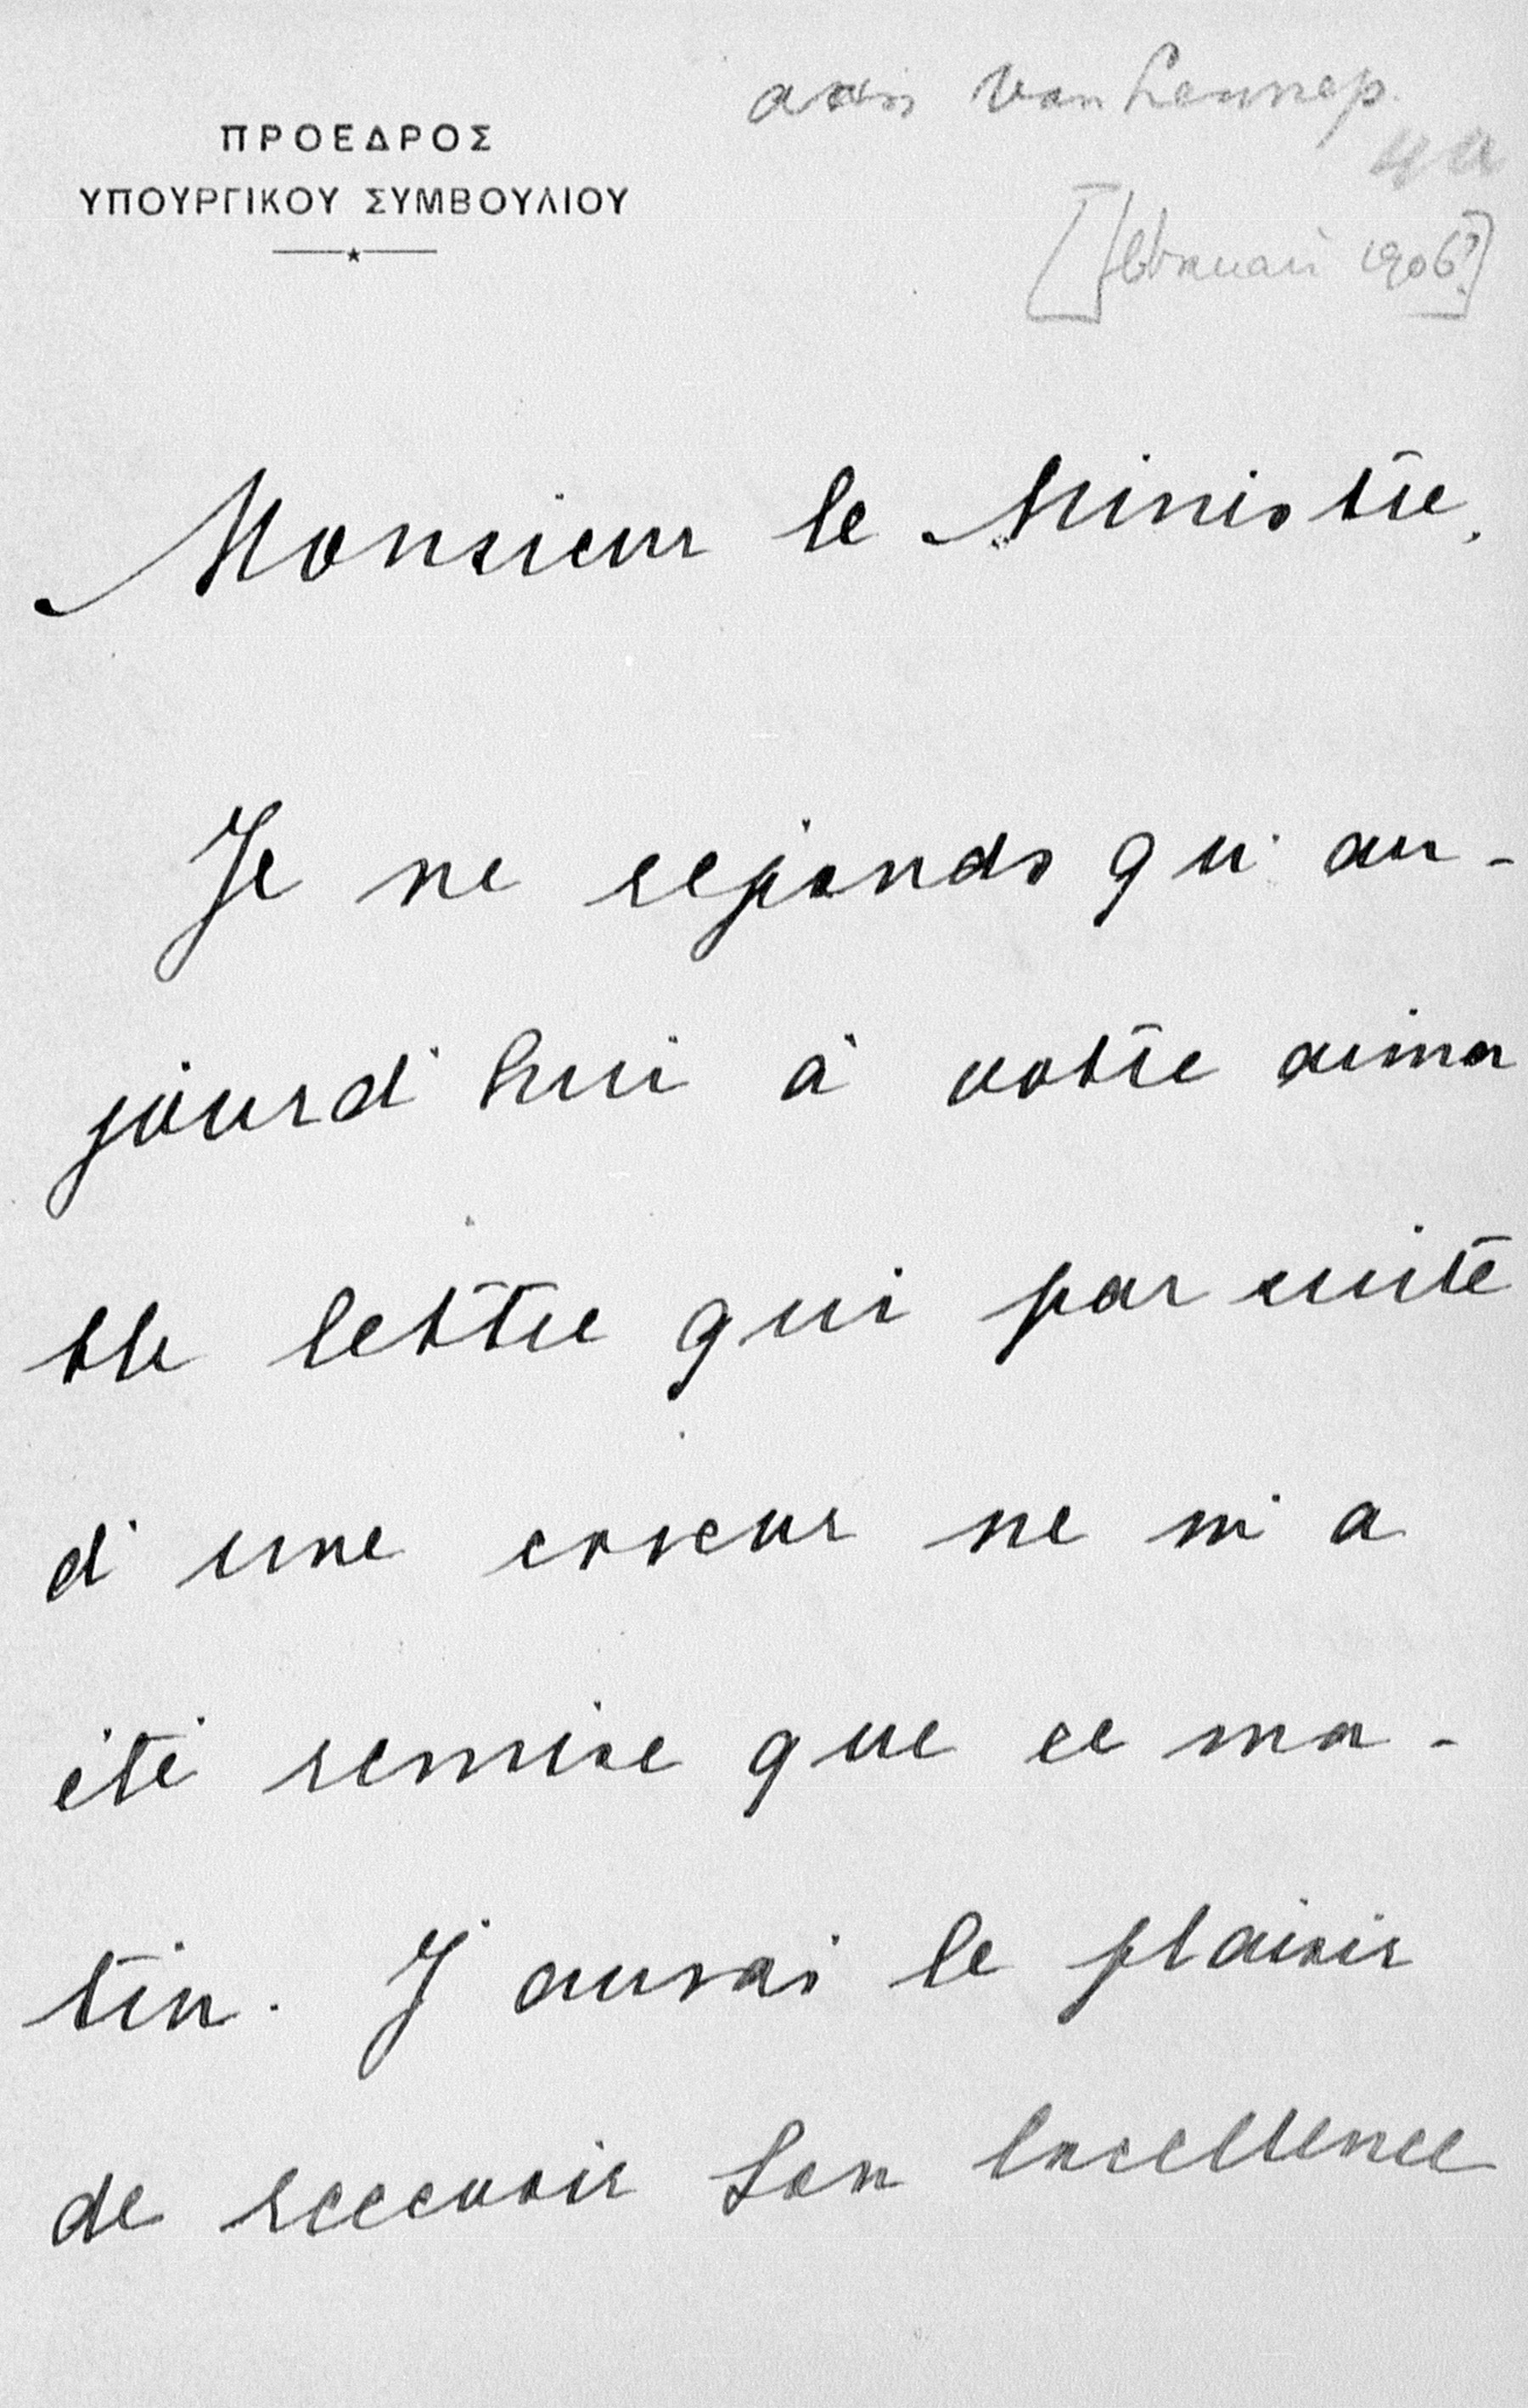 aan van Lennep.
ΠΡΟΕΔΡΟΣ
ΥΠΟΥΡΓΙΚΟΥ ΣΥΜΒΟΥΛΙΟΥ
4a
[februari 1906?]
Monsieur le Ministre,
Je ne reponds qu'au-
jourd'hui à votre aima
ble lettre qui par suite
d'une erreur ne m'a
été remise que ce ma-
tin. J'aurai le plaisir
de recevoir Son Excellence